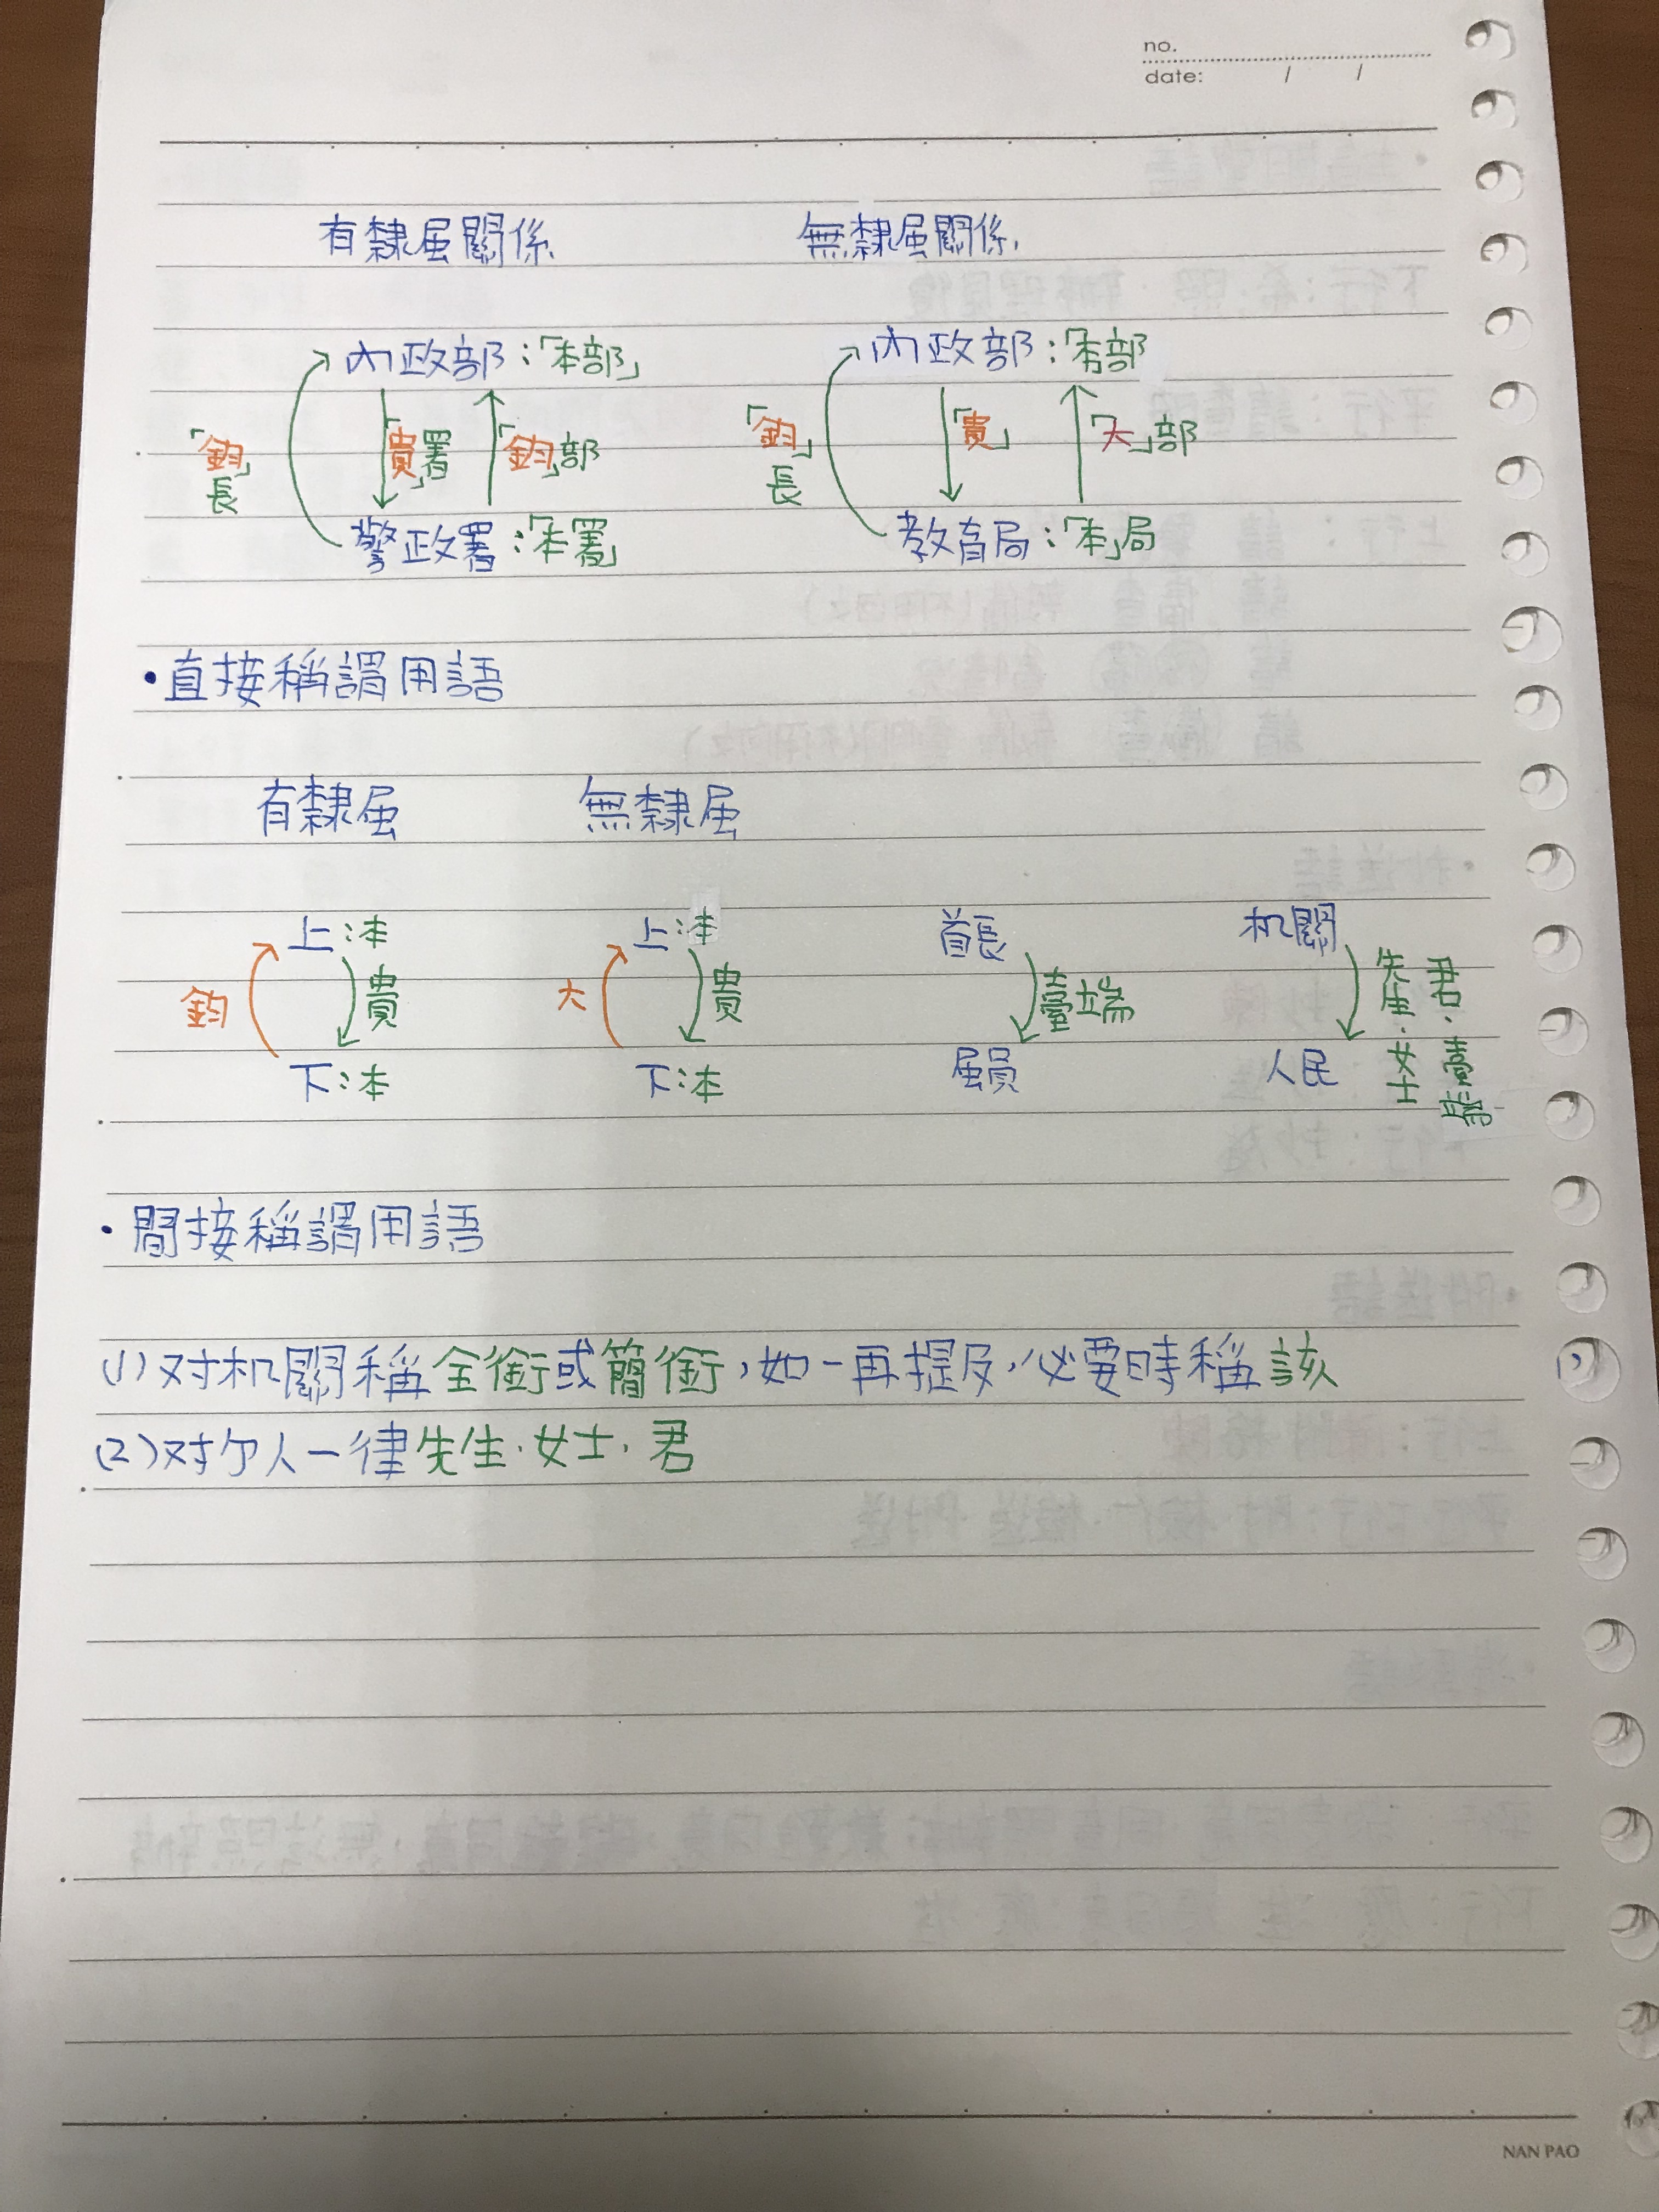 no.
date: / /
有隸屬關係 無隸屬關係
內政部：「本部」 內政部：「本」部
「鈞」長 「貴」署 「鈞」部 「鈞」長 「貴」 「大」部
警政署：「本署」 教育局：「本」局
•直接稱謂用語
有隸屬 無隸屬
上：本 上：本 首長 机關
鈞 貴 大 貴 臺端 先生.女士 君.臺端
下：本 下：本 屬員 人民
•間接稱謂用語
(1)对机關稱全銜或簡銜，如一再提及，必要時稱該
(2)对个人一律先生.女士.君
NAN PAO